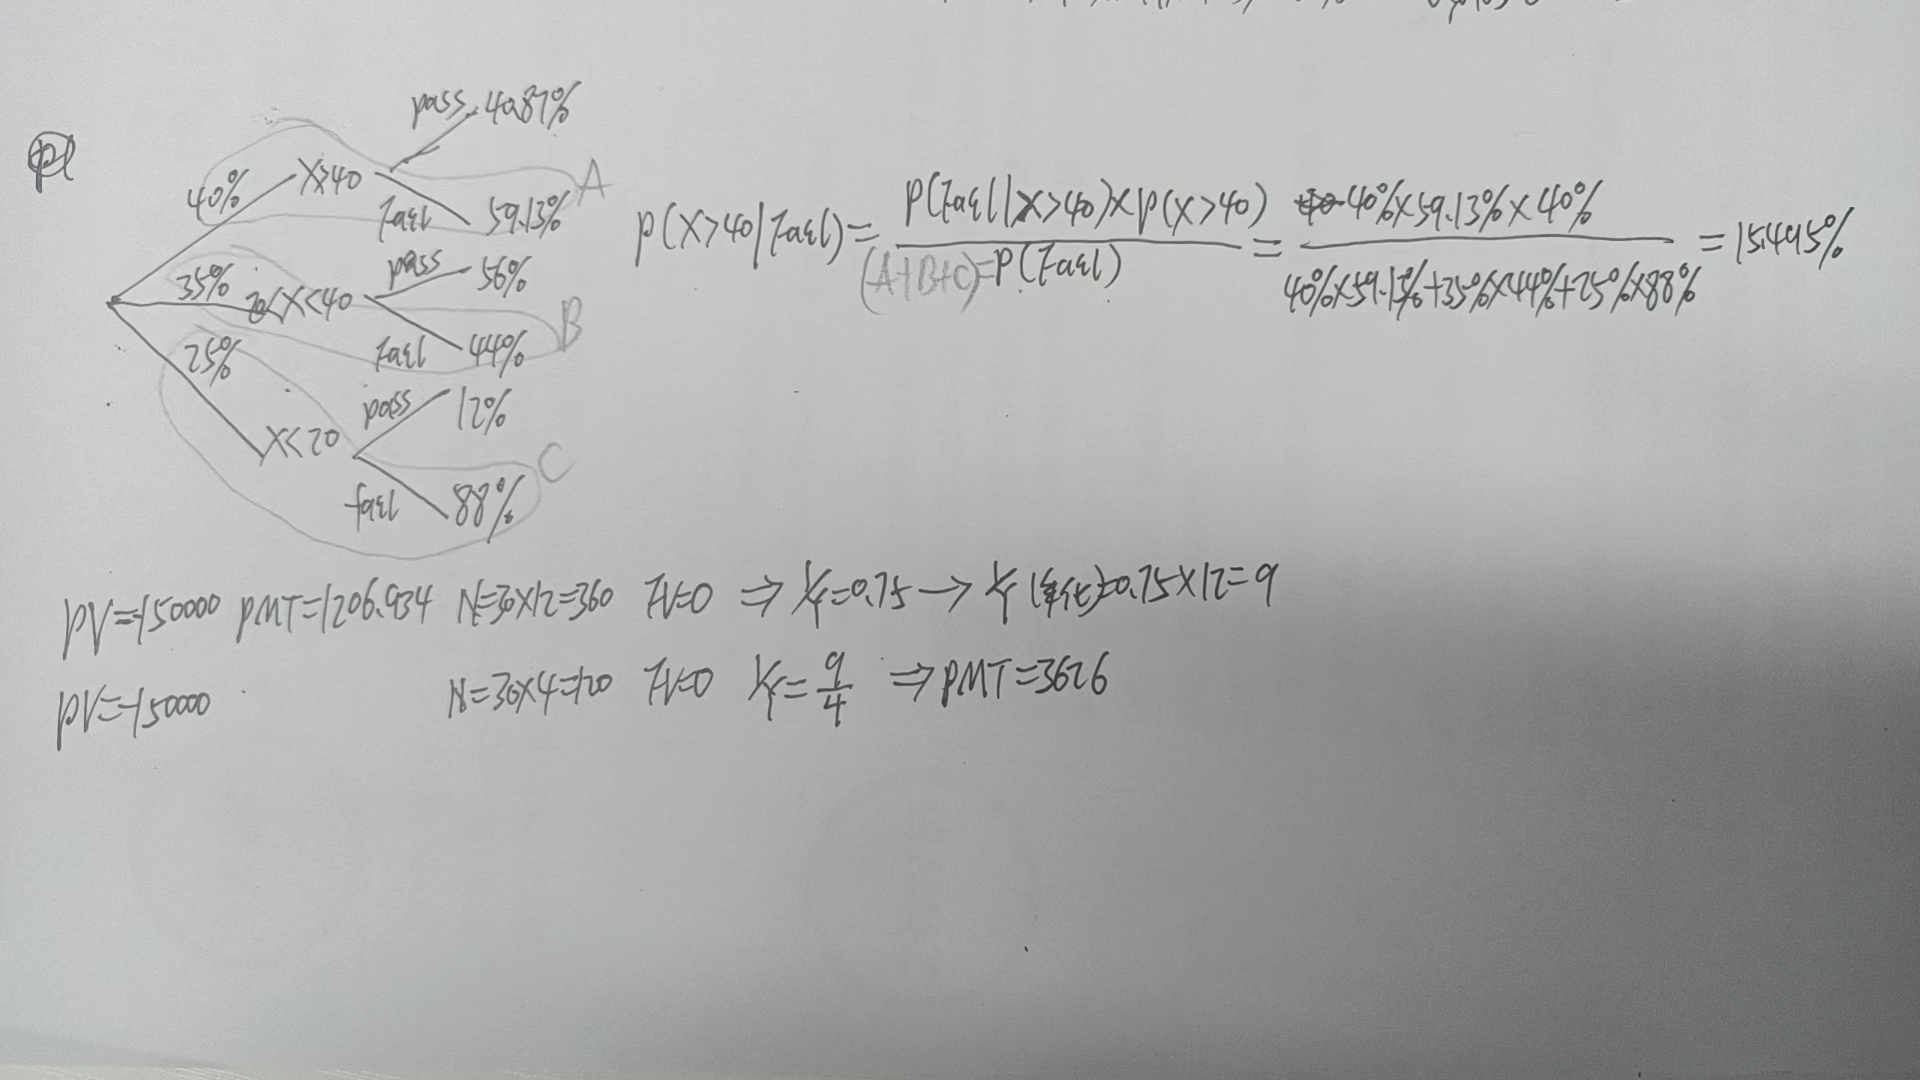 P1
pass 40.87%
40% X>40 A
fail 59.13%
P(X>40|fail)= P(fail|X>40)×P(X>40) / (A+B+C)=P(fail) = 40%×59.13%×40% / 40%×59.13%+35%×44%+25%×88% = 15.495%
pass 56%
35% 20<X<40 B
fail 44%
25% pass 12%
X<20 C
fail 88%
PV=-150000 PMT=1206.934 N=30×12=360 FV=0 ⇒ I/Y=0.75 → I/Y(年化)=0.75×12=9
PV=-150000 N=30×4=120 FV=0 I/Y=9/4 ⇒ PMT=3626